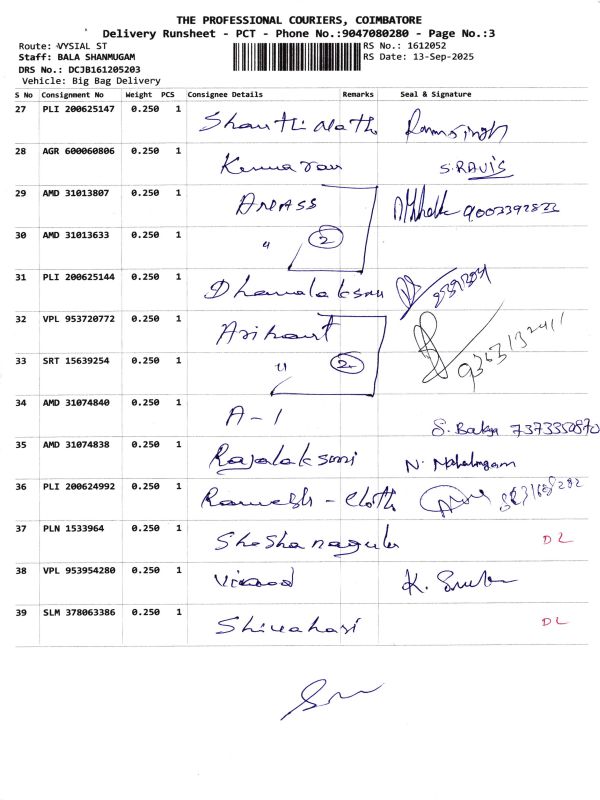 THE PROFESSIONAL COURIERS, COIMBATORE
Delivery Runsheet - PCT - Phone No.:9047080280 - Page No.:3
Route: VYSIAL ST
RS No.: 1612052
Staff: BALA SHANMUGAM
RS Date: 13-Sep-2025
DRS No.: DCJB161205203
Vehicle: Big Bag Delivery
S No Consignment No Weight PCS Consignee Details Remarks Seal & Signature
27 PLI 200625147 0.250 1 Shanthi Nath Ramsingh
28 AGR 600060806 0.250 1 Kumaran S.RAVIS
29 AMD 31013807 0.250 1
30 AMD 31013633 0.250 1 " 2
31 PLI 200625144 0.250 1 Dhanalaksmi
32 VPL 953720772 0.250 1 Arihant
33 SRT 15639254 0.250 1 " 2 9363132411
34 AMD 31074840 0.250 1 A-1 S. Balaji 7373350870
35 AMD 31074838 0.250 1 Rajalaksmi N. Mahalingam
36 PLI 200624992 0.250 1 Ramesh - Cloth
37 PLN 1533964 0.250 1 DL
38 VPL 953954280 0.250 1 Vinood K.
39 SLM 378063386 0.250 1 Shivahari DL